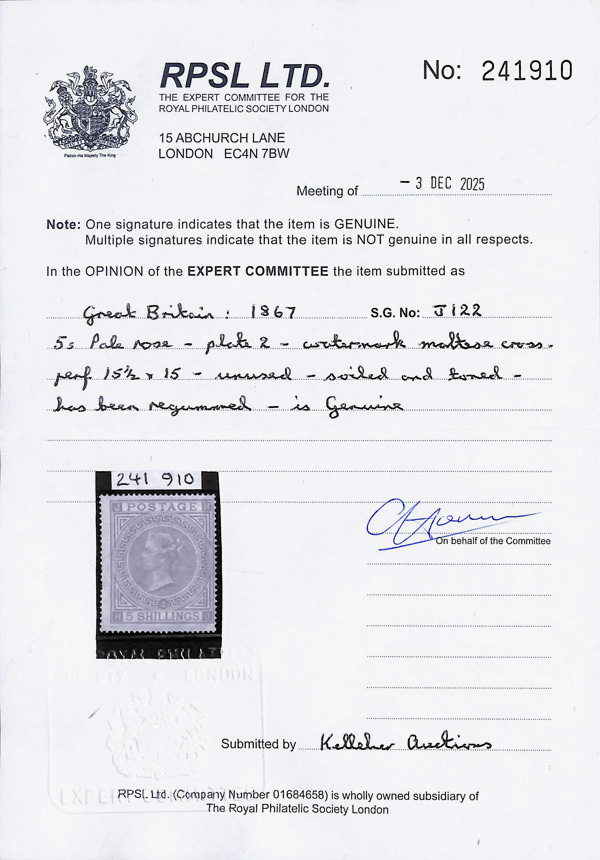 RPSL LTD.
THE EXPERT COMMITTEE FOR THE
ROYAL PHILATELIC SOCIETY LONDON
15 ABCHURCH LANE
LONDON EC4N 7BW
Patron His Majesty The King
No: 241910
Meeting of - 3 DEC 2025
Note: One signature indicates that the item is GENUINE.
Multiple signatures indicate that the item is NOT genuine in all respects.
In the OPINION of the EXPERT COMMITTEE the item submitted as
Great Britain: 1867 S.G. No: J122
5s Pale rose - plate 2 - watermark maltese cross -
perf 15½ x 15 - unused - soiled and toned -
has been regummed - is Genuine
241 910
POSTAGE
5 SHILLINGS
On behalf of the Committee
ROYAL PHILAT
SOCIETY LONDON
EXPERT COMMITTEE
Submitted by Kelleher Auctions
RPSL Ltd. (Company Number 01684658) is wholly owned subsidiary of
The Royal Philatelic Society London